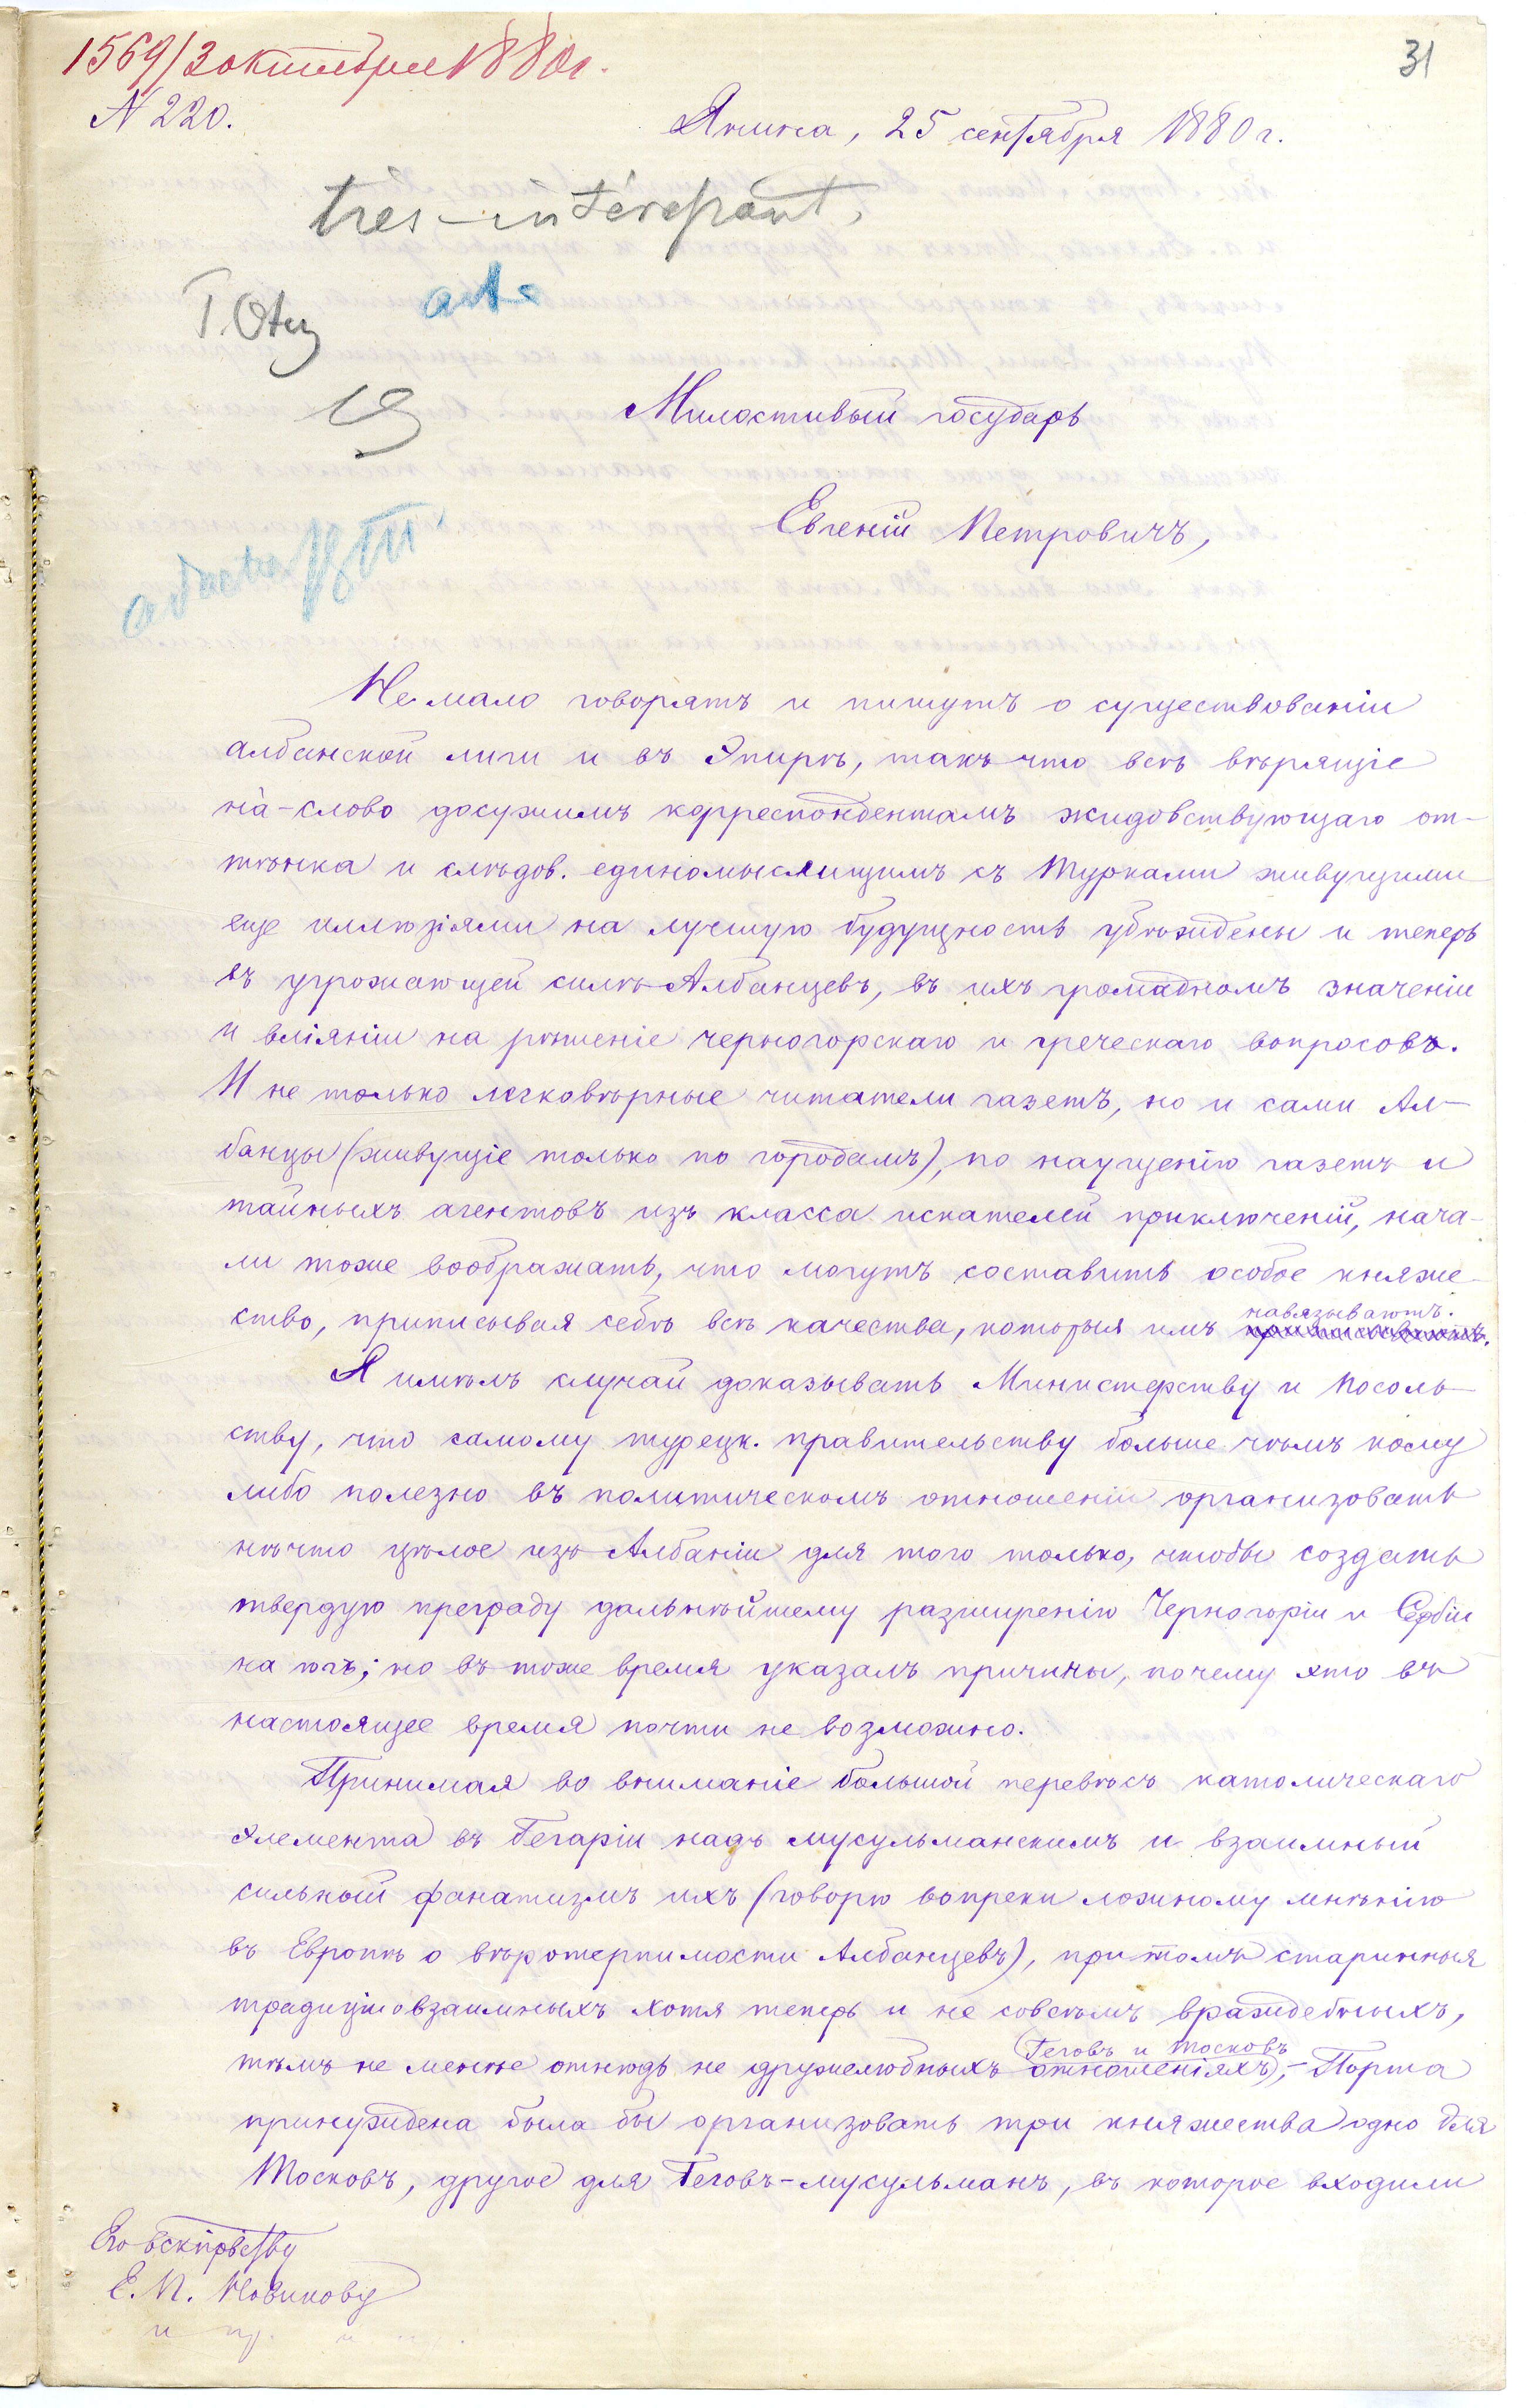 1569/3 октября 1880 г.
31
N 220.
Янина, 25 сентября 1880 г.
très-intéressant,
Милостивый государь
Евгеній Петровичъ,
Не мало говорятъ и пишутъ о существованіи
албанской лиги и въ Эпирѣ, такъ что всѣ вѣрящіе
на-слово досужимъ корреспондентамъ жидовствующаго от-
тѣнка и слѣдов. единомыслящимъ съ Турками живущими
еще иллюзіями на лучшую будущность убѣждены и теперь
въ угрожающей силѣ Албанцевъ, въ ихъ громадномъ значеніи
и вліяніи на рѣшеніе черногорскаго и греческаго вопросовъ.
И не только легковѣрные читатели газетъ, но и сами Ал-
банцы (живущіе только по городамъ), по наущенію газетъ и
тайныхъ агентовъ изъ класса искателей приключеній, нача-
ли тоже воображать, что могутъ составить особое княже-
ство, приписывая себѣ всѣ качества, которыя имъ навязываютъ.
Я имѣлъ случай доказывать Министерству и Посоль-
ству, что самому турецк. правительству больше чѣмъ кому
либо полезно въ политическомъ отношеніи организовать
нѣчто цѣлое изъ Албаніи для того только, чтобы создать
твердую преграду дальнѣйшему разширенію Черногоріи и Сербіи
на югъ; но въ тоже время указалъ причины, почему это въ
настоящее время почти не возможно.
Принимая во вниманіе большой перевѣсъ католическаго
элемента въ Гегаріи надъ мусульманскимъ и взаимный
сильный фанатизмъ ихъ (говорю вопреки ложному мнѣнію
въ Европѣ о вѣротерпимости Албанцевъ), при томъ старинныя
традиціи о взаимныхъ хотя теперь и не совсѣмъ враждебныхъ,
тѣмъ не менѣе отнюдь не дружелюбныхъ отношеніяхъ (Геговъ и Тосковъ), – Порта
принуждена была бы организовать три княжества одно для
Тосковъ, другое для Геговъ-мусульманъ, въ которое входили
Его Вскпрвству
Е. П. Новикову
и пр. и пр.